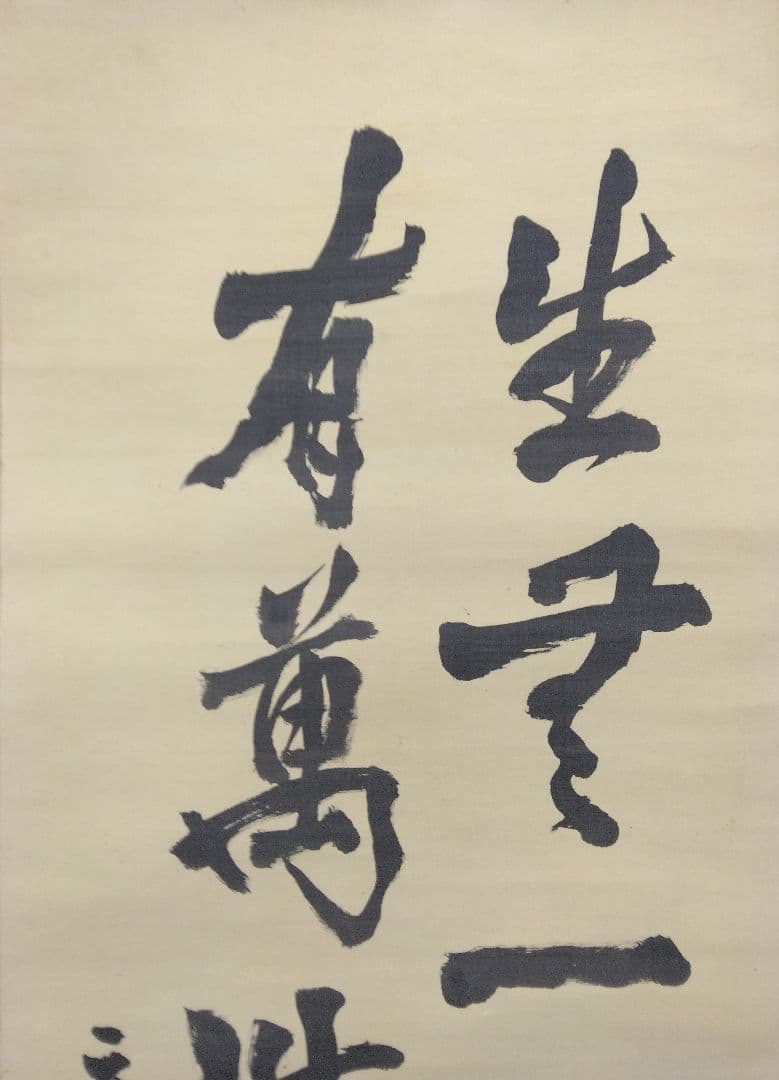 生無一
有萬